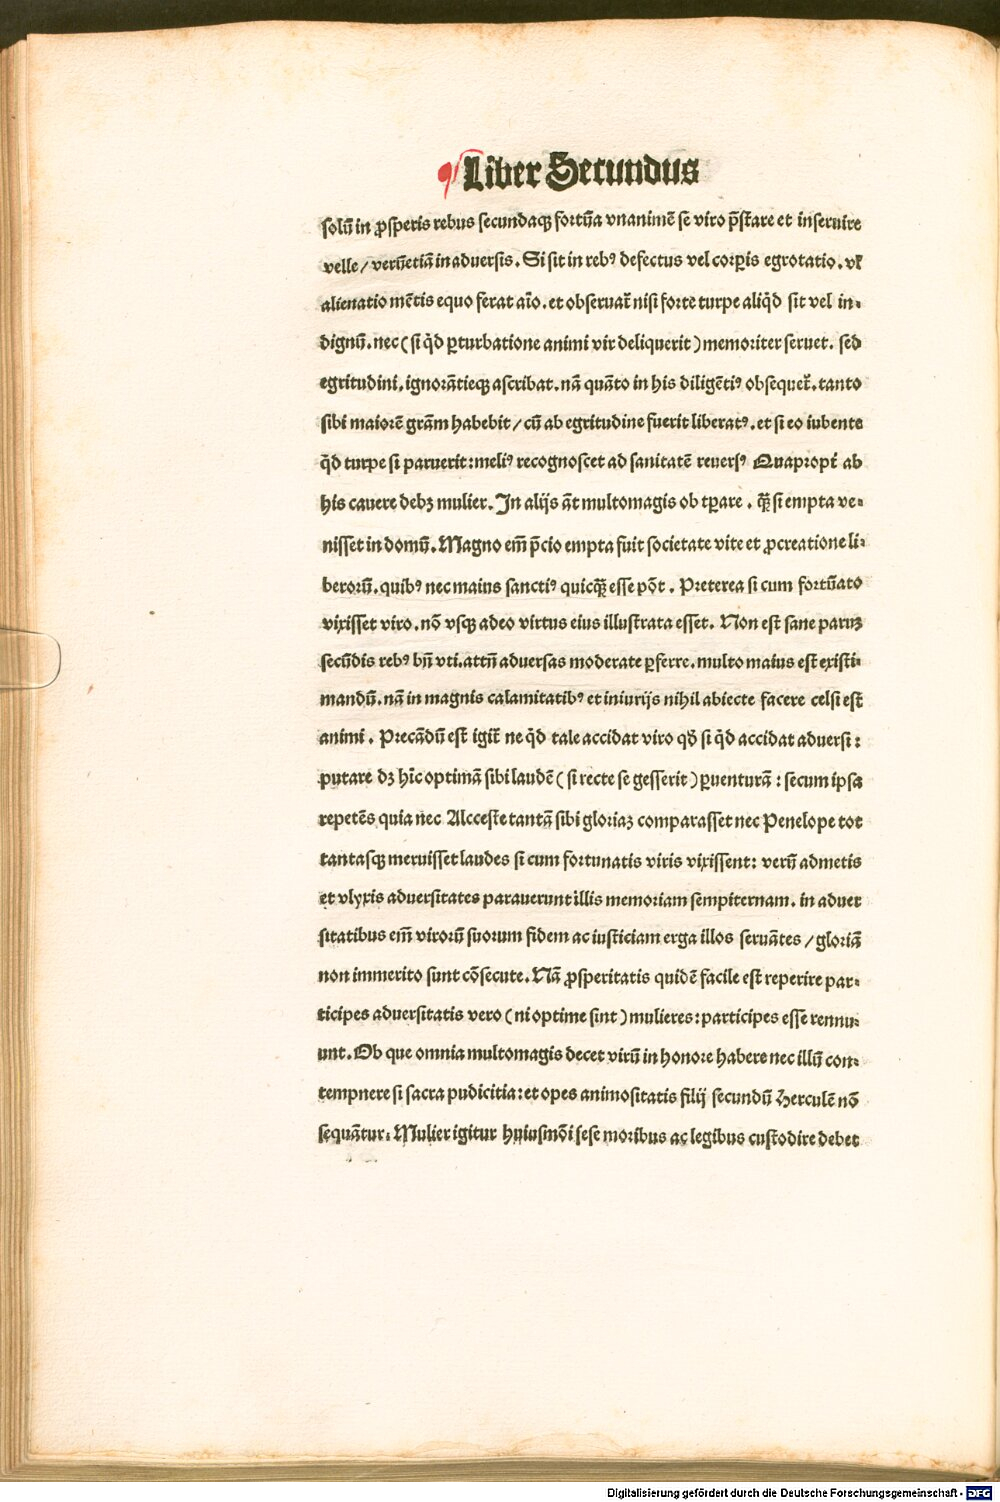 Liber Secundus
solū in ꝓsperis rebus secundaqꝫ fortūa vnanimē se viro p̄stare et inseruire
velle / verūetiā in aduersis. Si sit in rebꝰ defectus vel corꝑis egrotatio. vł
alienatio mētis equo ferat aīo. et obseruat̄ nisi forte turpe aliq̇d sit vel in⸗
dignū. nec ( si q̇d ꝑturbatione animi vir deliquerit ) memoriter seruet. sed
egritudini. ignorātieqꝫ ascribat. nā quāto in his diligētiꝰ obsequet̄. tanto
sibi maiorē grām habebit / cū ab egritudine fuerit liberatꝰ. et si eo iubente
q̇d turpe si paruerit: meliꝰ recognoscet ad sanitatē reuersꝰ Quapropt̄ ab
his cauere debꝫ mulier. In alijs āt multomagis obtꝑare. q̄ꝫ si empta ve⸗
nisset in domū. Magno em̄ p̄cio empta fuit societate vite et ꝓcreatione li⸗
berorū. quibꝰ nec maius sanctiꝰ quicq̄ꝫ esse pōt. Preterea si cum fortūato
vixisset viro. nō vsqꝫ adeo virtus eius illustrata esset. Non est sane paruꝫ
secūdis rebꝰ bn̄ vti. attn̄ aduersas moderate ꝑferre. multo maius est existi⸗
mandū. nā in magnis calamitatibꝰ et iniurijs nihil abiecte facere celsi est
animi. Precādū est igit̄ ne q̇d tale accidat viro qḋ si q̇d accidat aduersi:
putare dꝫ hīc optimā sibi laudē ( si recte se gesserit ) ꝑuenturā: secum ipsa
repetēs quia nec Alcceste tantā sibi gloriaꝫ comparasset nec Penelope tot
tantasqꝫ meruisset laudes si cum fortunatis viris vixissent: verū admetis
et vlyxis aduersitates parauerunt illis memoriam sempiternam. in aduer
sitatibus em̄ virorū suorum fidem ac iusticiam erga illos seruātes / gloriā
non immerito sunt cōsecute. Nā ꝓsperitatis quidē facile est reperire par⸗
ticipes aduersitatis vero ( ni optime sint ) mulieres: participes esse rennu⸗
unt. Ob que omnia multomagis decet virū in honore habere nec illū con⸗
tempnere si sacra pudicitia: et opes animositatis filij secundū Herculē nō
sequātur: Mulier igitur huiusmōi sese moribus ac legibus custodire debet
Digitalisierung gefördert durch die Deutsche Forschungsgemeinschaft - DFG